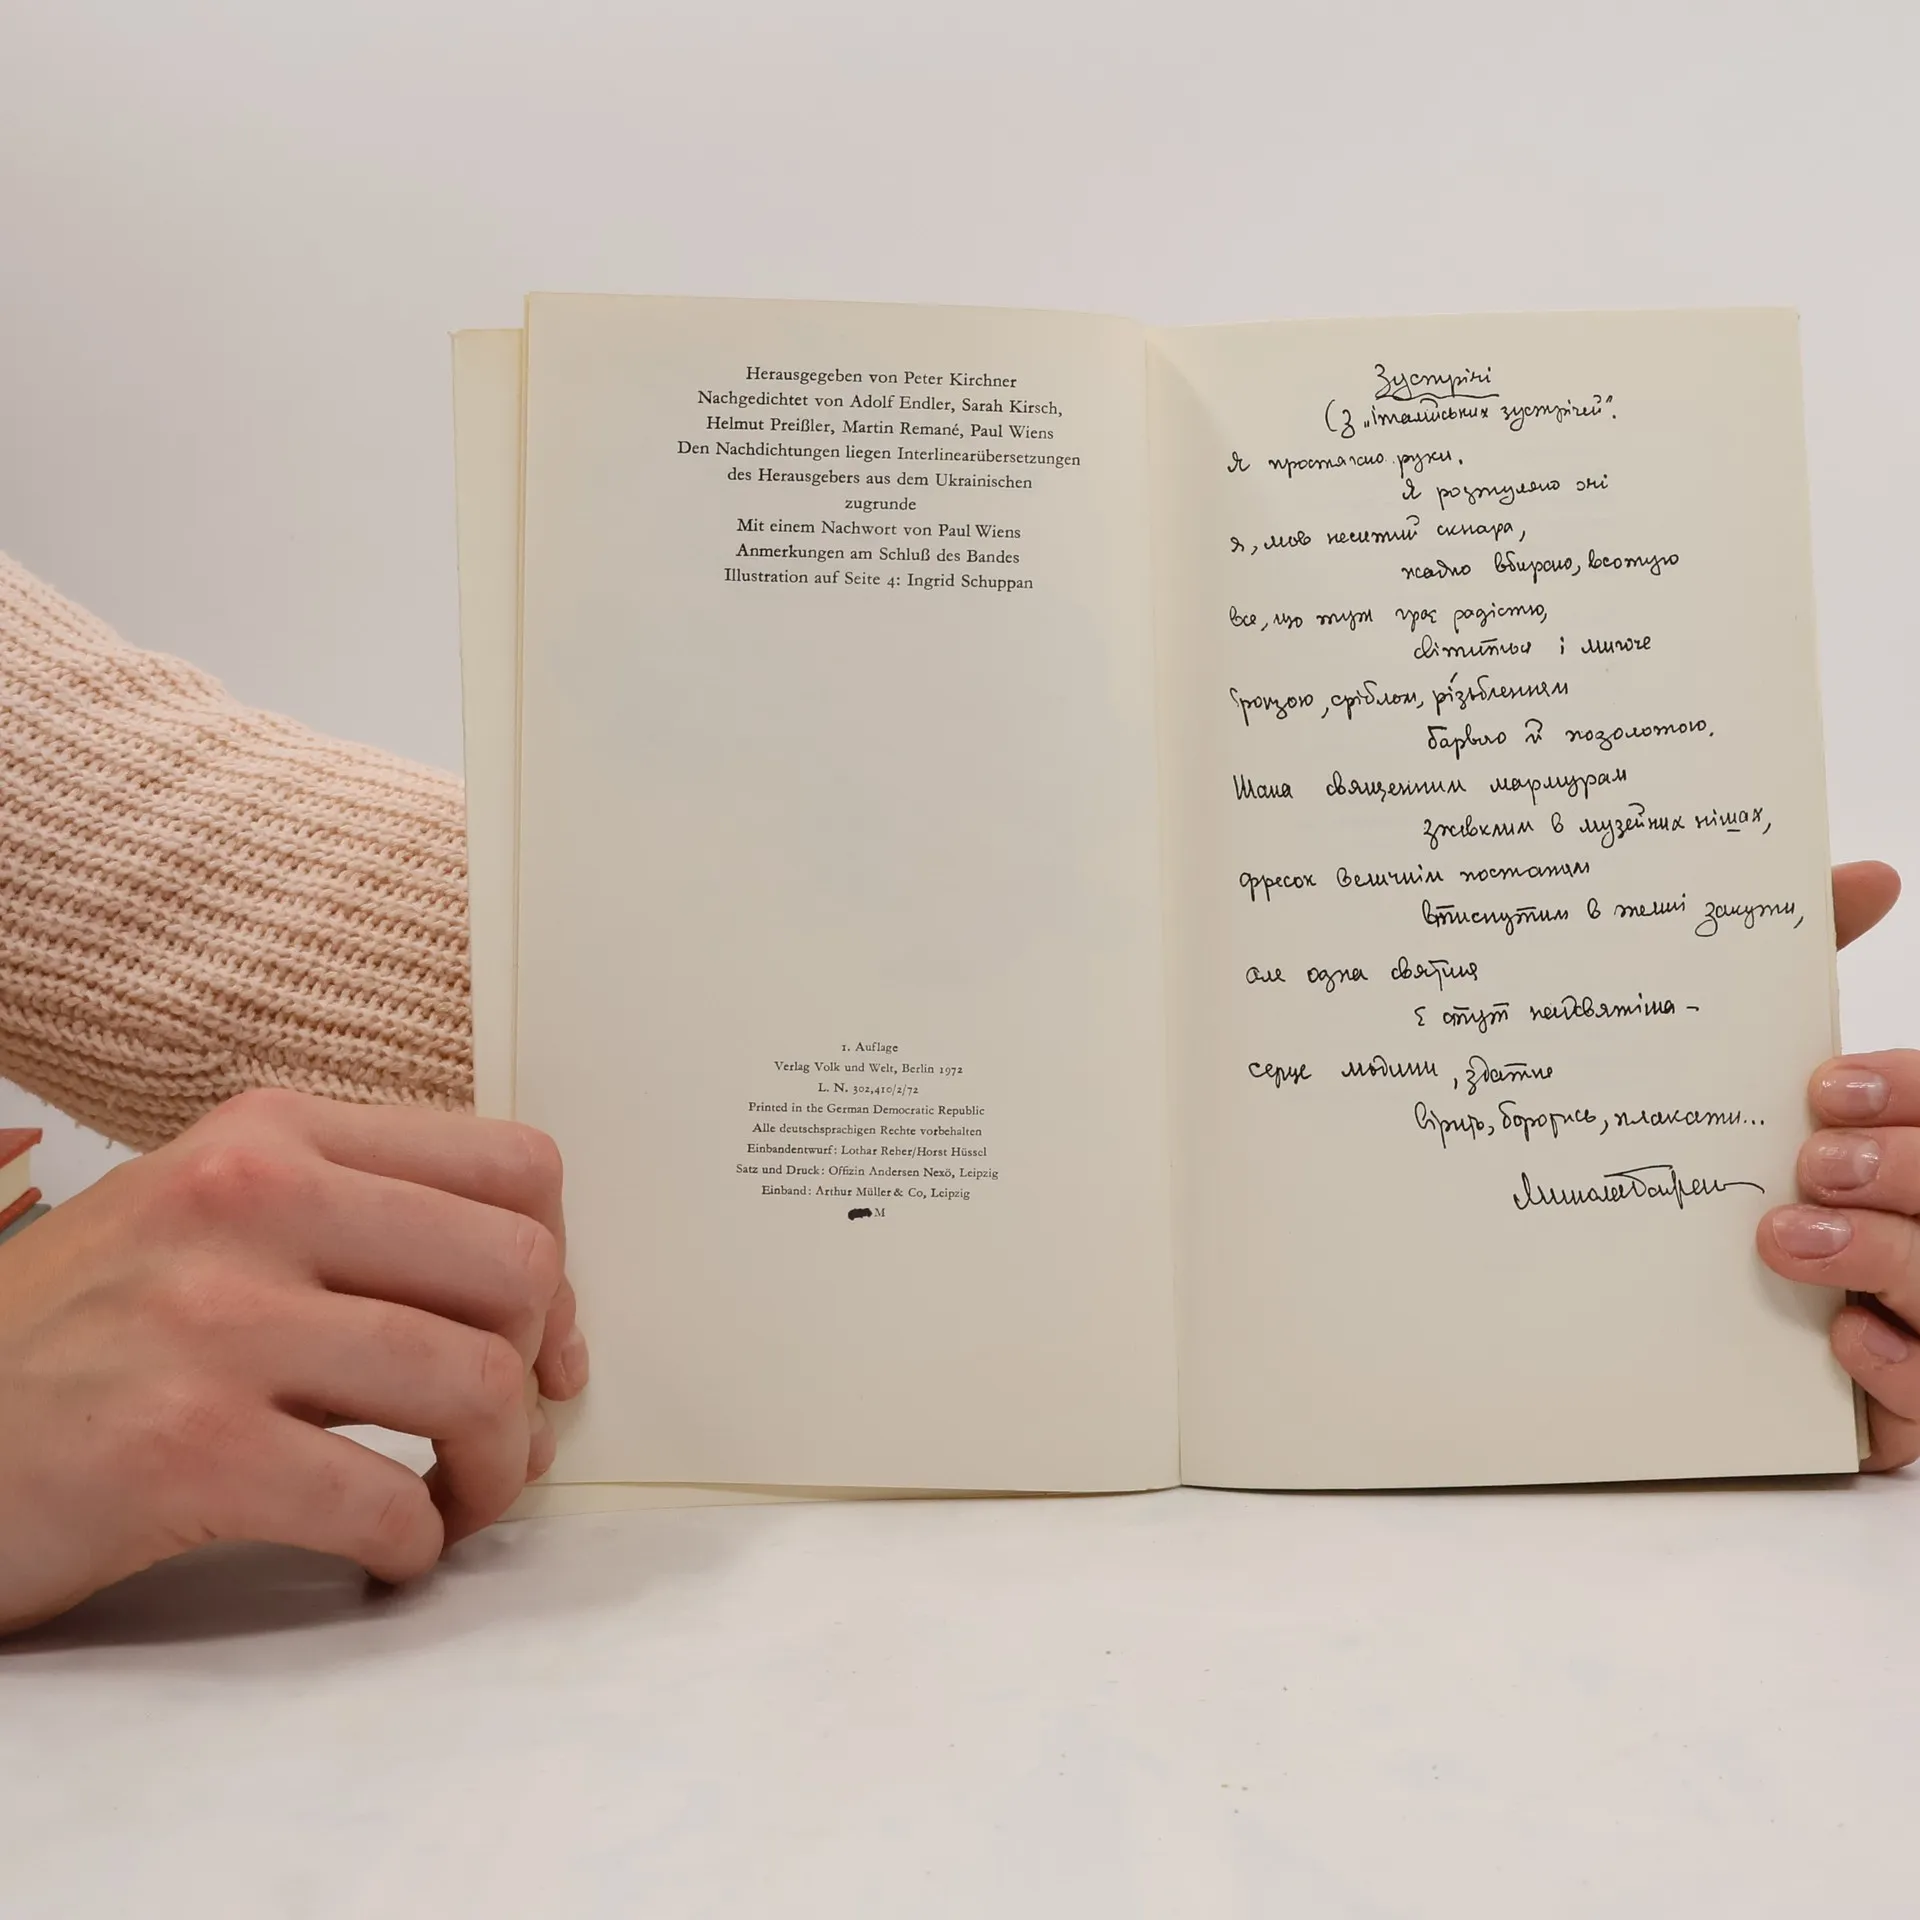 Herausgegeben von Peter Kirchner
Nachgedichtet von Adolf Endler, Sarah Kirsch,
Helmut Preißler, Martin Remané, Paul Wiens
Den Nachdichtungen liegen Interlinearübersetzungen
des Herausgebers aus dem Ukrainischen
zugrunde
Mit einem Nachwort von Paul Wiens
Anmerkungen am Schluß des Bandes
Illustration auf Seite 4: Ingrid Schuppan
1. Auflage
Verlag Volk und Welt, Berlin 1972
L. N. 302,410/2/72
Printed in the German Democratic Republic
Alle deutschsprachigen Rechte vorbehalten
Einbandentwurf: Lothar Reher/Horst Hüssel
Satz und Druck: Offizin Andersen Nexö, Leipzig
Einband: Arthur Müller & Co, Leipzig
M
Зустрічі
(З „італійських зустрічей".
Я простягаю руки.
Я розтуляю очі
я, мов неситий скнара,
жадно вбираю, всотую
все, що тут грає радістю,
світиться і
бронзою, срібло́м, рі́зьбленням
барвою й позолотою.
Шана священним мармурам
зжовклим в музейних нішах,
фресок величнім постатям
втиснутим в темні закути,
але одна святиня
є отут найсвятіша –
серце людини, здатне
вірить, боротись, плакати...